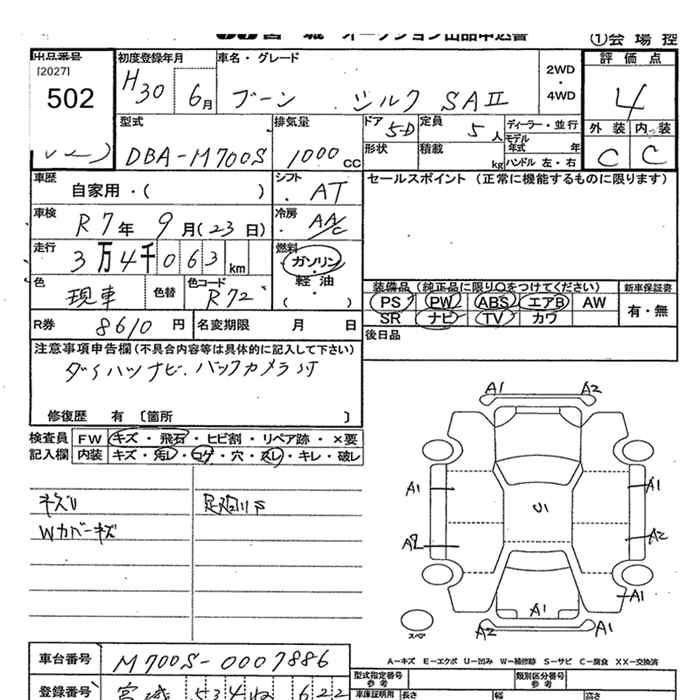 宮城 オークション出品申込書 ①会場控
出品番号 [2027] 502
初度登録年月 H30 6月
車名・グレード ブーン シルク SAⅡ
2WD・4WD
評価点 4
外装 内装
C C
型式 DBA-M700S
排気量 1000cc
ドア 5D 定員 5人
形状 積載 kg
ディーラー・並行
モデル年式 年
ハンドル 左・右
車歴 自家用・( )
シフト AT
セールスポイント (正常に機能するものに限ります)
車検 R7年 9月(23日)
冷房 AA/C
走行 3万4千063km
燃料 ガソリン・軽油・( )
色 現車 色替 色コード R72
装備品 (純正品に限り○をつけてください)
新車保証書
PS PW ABS エアB AW
SR ナビ TV カワ
有・無
R券 8610円 名変期限 月 日
後日品
注意事項申告欄 (不具合内容等は具体的に記入して下さい)
ダイハツナビ.バックカメラ付
修復歴 有 〔箇所 〕
検査員記入欄
FW キズ・飛石・ヒビ割・リペア跡・×要
内装 キズ・汚レ・コゲ・穴・スレ・キレ・破レ
キズU
Wカバーキズ
A1 A2
A1 A1
U1
A2 A2
A1 A1
A2 A1
スペア
A-キズ E-エクボ U-凹み W-補修跡 S-サビ C-腐食 XX-交換済
車台番号 M700S-0007886
型式指定番号 参考
類別区分番号 参考
登録番号 宮城 534 ね 622
車庫証明用 参考 長さ 幅 高さ